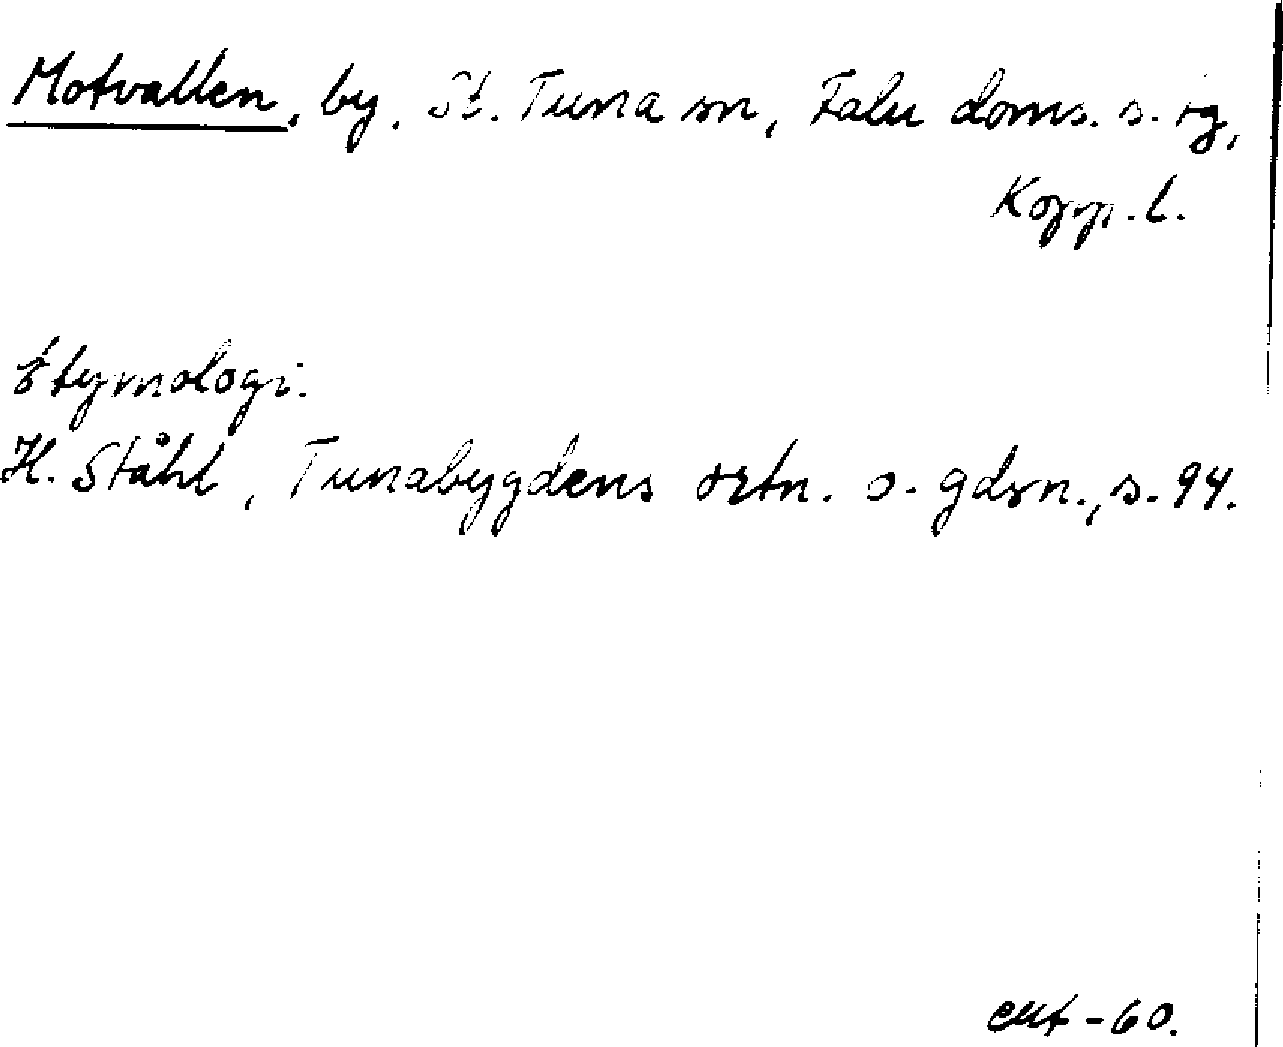 Motvallen, by, St. Tuna sn, Falu doms. s. tg,
Kopp. l.
Etymologi.
H. Ståhl, Tunabygdens ortn. o. gdsn., s. 94.
-60.